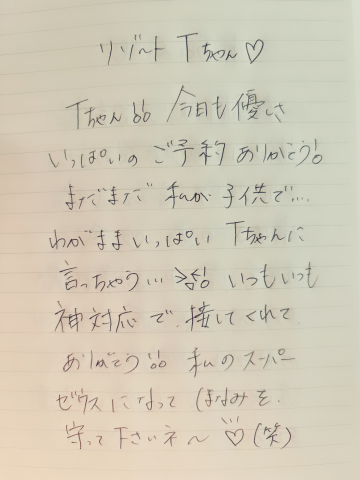 リゾート Tちゃん♡
Tちゃん!! 今日も優しさ
いっぱいの ご予約 ありがとう!!
まだまだ 私が 子供で…
わがままいっぱい Tちゃんに
言っちゃう… いつもいつも
神対応で、接してくれて
ありがとう!! 私のスーパー
ゼウスになって ほなみを
守って下さいネ〜♡(笑)